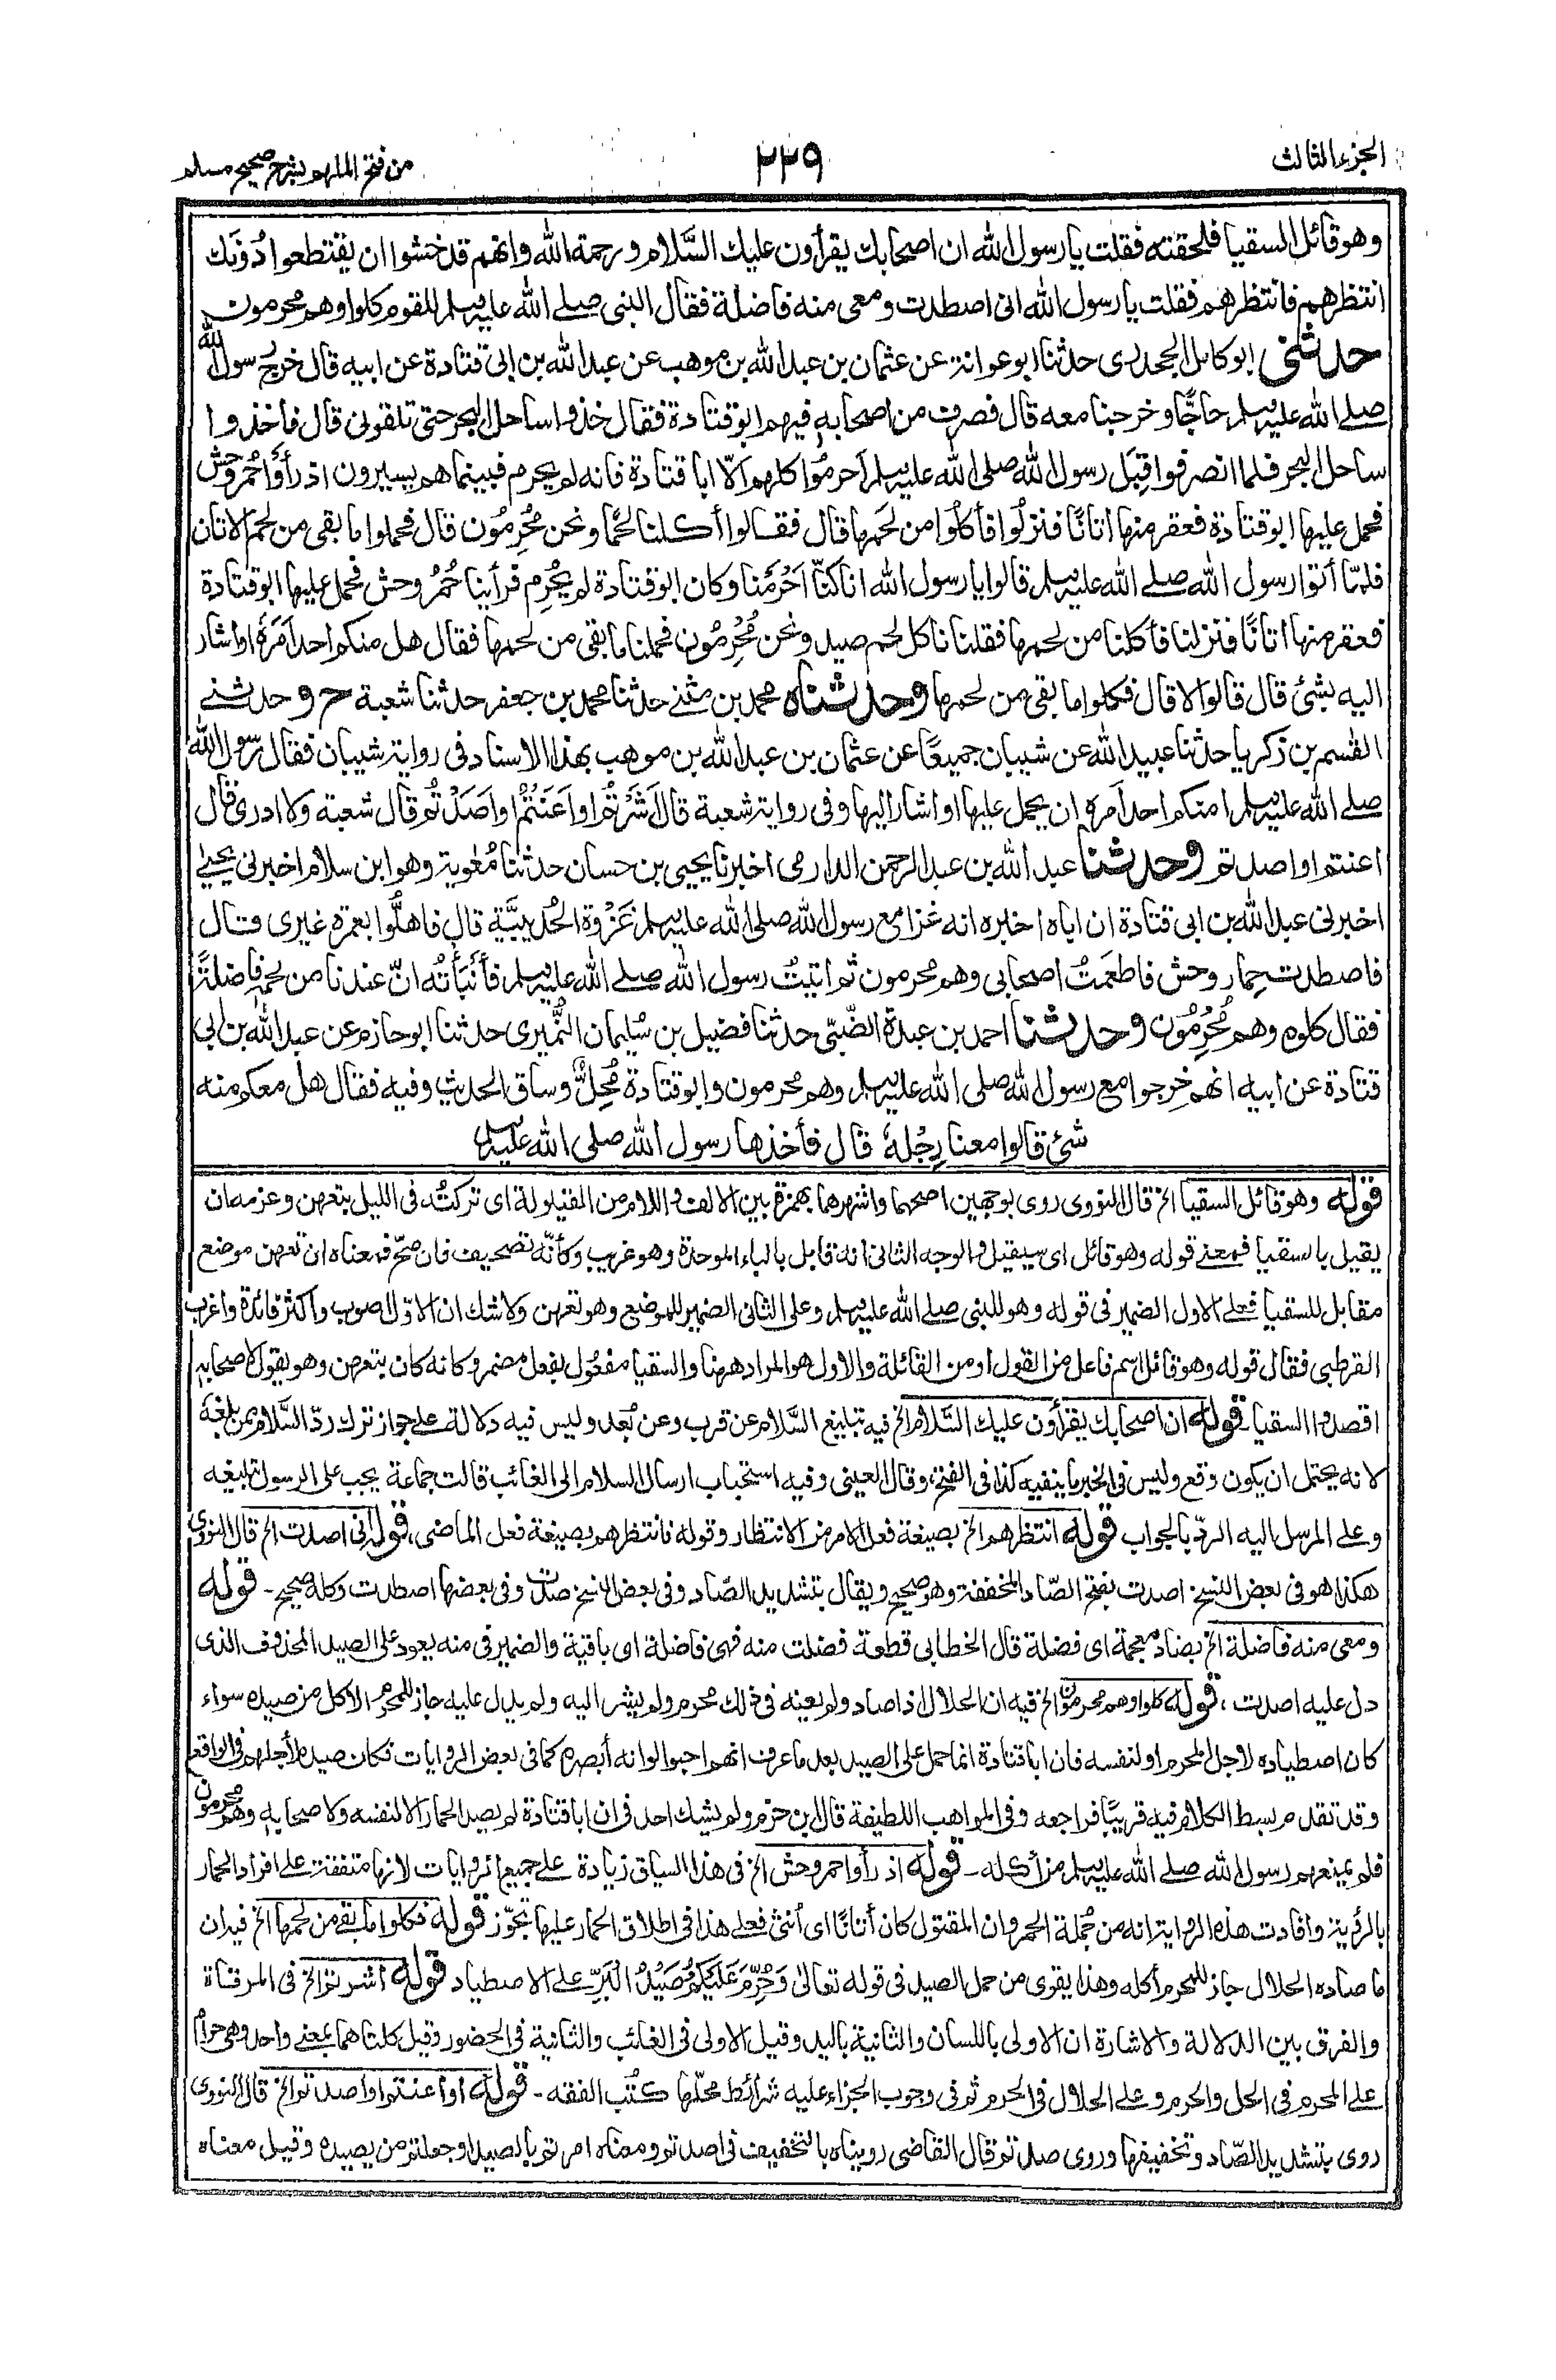 الجزء الثالث
٢٢٩
من فتح الملهم بشرح صحيح مسلم
وهو قائل السقيا فلحقته فقلت يا رسول الله ان اصحابك يقرأون عليك السَّلام ورحمة الله وانهم قد خشوا ان يقتطعوا دُونَك
انتظرهم فانتظرهم فقلت يا رسول الله انى اصطدت ومعى منه فاضلة فقال النبى صلى الله عليه وسلم للقوم كلوا وهم محرمون
حدثنى ابو كامل الجحدرى حدثنا ابو عوانة عن عثمان بن عبد الله بن موهب عن عبد الله بن ابى قتادة عن ابيه قال خرج رسول الله
صلى الله عليه وسلم حاجًّا وخرجنا معه قال فصرف من اصحابه فيهم ابو قتادة فقال خذوا ساحل البحر حتى تلقونى قال فأخذوا
ساحل البحر فلما انصرفوا قِبَل رسول الله صلى الله عليه وسلم اَحرمُوا كلهم الّا ابا قتادة فانه لم يحرم فبينما هم يسيرون اذ رأَوْا حُمُر وحش
فحمل عليها ابو قتادة فعقر منها اَتانًا فنزلُوا فأكلُوا من لحمها قال فقالوا أكلنا لحمًا ونحن مُحْرِمُون قال فحملوا ما بقى من لحم الاتان
فلمّا أتوا رسول الله صلى الله عليه وسلم قالوا يا رسول الله انا كنّا اَحْرَمْنا وكان ابو قتادة لم يُحْرِم فرأينا حُمُر وحش فحمل عليها ابو قتادة
فعقر منها اتانًا فنزلنا فأكلنا من لحمها فقلنا نأكل لحم صيد ونحن مُحْرِمُون فحملنا ما بقى من لحمها فقال هل منكم احد اَمَرَه او اشار
اليه بشئ قال قالوا لا قال فكلوا ما بقى من لحمها وحدثناه محمد بن مثنى حدثنا محمد بن جعفر حدثنا شعبة ح وحدثنى
القسم بن زكريا حدثنا عبيد الله عن شيبان جميعًا عن عثمان بن عبد الله بن موهب بهذا الاسناد فى رواية شيبان فقال رسول الله
صلى الله عليه وسلم امنكم احد اَمره ان يحمل عليها او اشار اليها وفى رواية شعبة قال اَشَرْتُم او اَعَنْتُمْ او اَصَدْتُم قال شعبة ولا ادرى قال
اعنتم او اصدتم وحدثنا عبد الله بن عبد الرحمن الدارمى اخبرنا يحيى بن حسان حدثنا مُعٰوية وهو ابن سلام اخبرنى يحيى
اخبرنى عبد الله بن ابى قتادة ان اباه اخبره انه غزا مع رسول الله صلى الله عليه وسلم غَزْوة الحُدَيبيَّة قال فاهلُّوا بعمرة غيرى قال
فاصطدت حِمار وحش فاطعَمتُ اصحابى وهم محرمون ثم اتيتُ رسول الله صلى الله عليه وسلم فأنبَأتُه انّ عندنا من لحمه فاضلةً
فقال كلوه وهم مُحْرِمُون وحدثنا احمد بن عبدة الضّبّى حدثنا فضيل بن سُليمان النُّمَيرى حدثنا ابو حازم عن عبد الله بن ابى
قتادة عن ابيه انهم خرجوا مع رسول الله صلى الله عليه وسلم وهم محرمون وابو قتادة مُحِلٌّ وساق الحديث وفيه فقال هل معكم منه
شئ قالوا معنا رِجْلهُ قال فأخذها رسول الله صلى الله عليه وسلم
قوله وهو قائل السقيا الخ قال النووى روى بوجهين اصحهما واشهرهما بهمزة بين الالف واللام من القيلولة اى تركتُه فى الليل بتعهن وعزمه ان
يقيل بالسقيا فمعنى قوله وهو قائل اى سيقيل والوجه الثانى انه قابل بالباء الموحدة وهو غريب وكأنّه تصحيف فان صحّ فمعناه ان تعهن موضع
مقابل للسقيا فعلى الاول الضمير فى قوله وهو للنبى صلى الله عليه وسلم وعلى الثانى الضمير للموضع وهو تعهن ولا شك ان الاوّل اصوب واكثر فائدة واغرب
القرطبى فقال قوله وهو قائل اسم فاعل من القول او من القائلة والاول هو المراد ههنا والسقيا مفعُول بفعل مضمر وكانه كان بتعهن وهو يقول لاصحابه
اقصدوا السقيا - قوله ان اصحابك يقرأون عليك السَّلام الخ فيه تبليغ السَّلام عن قرب وعن بُعد وليس فيه دلالة على جواز ترك ردّ السَّلام ممن بلغه
لانه يحتمل ان يكون وقع وليس فى الخبر ما ينفيه كذا فى الفتح، وقال العينى وفيه استحباب ارسال السلام الى الغائب قالت جماعة يجب على الرسول تبليغه
وعلى المرسل اليه الردّ بالجواب قوله انتظرهم الخ بصيغة فعل الامر من الانتظار وقوله فانتظرهم بصيغة فعل الماضى، قوله انى اصدت الخ قال النووى
هكذا هو فى بعض النسخ اصدت بفتح الصّاد المخففة وهو صحيح ويقال بتشديد الصّاد وفى بعض النسخ صدت وفى بعضها اصطدت وكله صحيح - قوله
ومعى منه فاضلة الخ بضاد معجمة اى فضلة قال الخطابى قطعة فضلت منه فهى فاضلة اى باقية والضمير فى منه يعود على الصيد المحذوف الذى
دل عليه اصدت، قوله كلوا وهم محرمون الخ فيه ان الحلال اذا صاد ولم يعنه فى ذلك محرم ولم يشر اليه ولم يدل عليه جاز للمحرم الاكل من صيده سواء
كان اصطياده لاجل المحرم او لنفسه فان ابا قتادة انما حمل على الصيد بعد ما عرف انهم احبوا لو انه أبصره كما فى بعض الروايات فكان صيده لأجلهم فى الواقع
وقد تقدم بسط الكلام فيه قريبًا فراجعه وفى المواهب اللطيفة قال ابن حزم ولم يشك احد فى ان ابا قتادة لم يصد الحمار الا لنفسه ولاصحابه وهم محرمون
فلم يمنعهم رسول الله صلى الله عليه وسلم من أكله - قوله اذ رأوا حمر وحش الخ فى هذا السياق زيادة على جميع الروايات لانها متفقة على افراد الحمار
بالرؤية وافادت هذه الرواية انه من جُملة الحمر وان المقتول كان أتانًا اى أنثى فعلى هذا فى اطلاق الحمار عليها تجوّز قوله فكلوا ما بقى من لحمها الخ فيه ان
ما صاده الحلال جاز للمحرم أكله وهذا يقوى من حمل الصيد فى قوله تعالىٰ وَحُرِّمَ عَلَيْكُمْ صَيْدُ الْبَرِّ على الاصطياد قوله اشرتم الخ فى المرقاة
والفرق بين الدلالة والاشارة ان الاولى باللسان والثانية باليد وقيل الاولى فى الغائب والثانية فى الحضور وقيل كلتاهما بمعنى واحد وهى حرام
على المحرم فى الحل والحرم وعلى الحلال فى الحرم ثم فى وجوب الجزاء عليه شرائط محلّها كتُب الفقه - قوله او اعنتم او اصدتم الخ قال النووى
روى بتشديد الصّاد وتخفيفها وروى صدتم قال القاضى رويناه بالتخفيف فى اصدتم ومعناه امرتم بالصيد او جعلتم من يصيده وقيل معناه